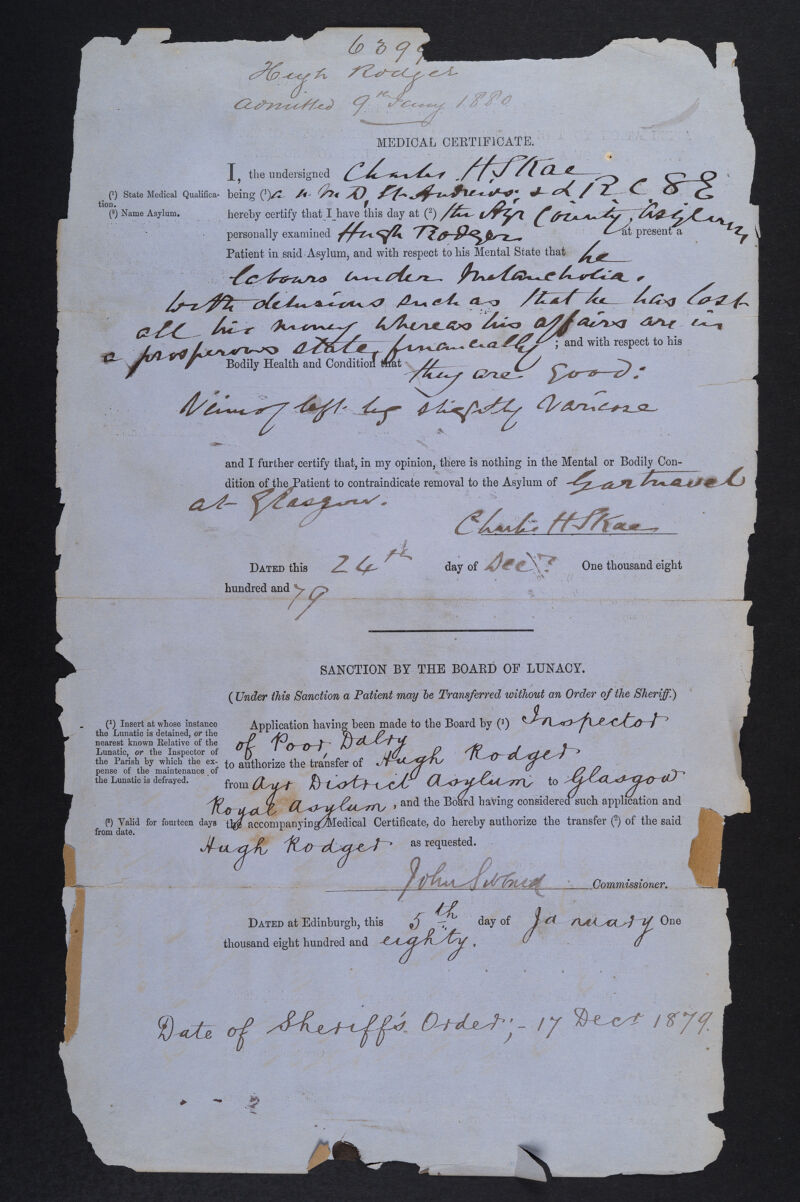 6399
Hugh Rodger
admitted 9th Jany 1880
MEDICAL CERTIFICATE.
I, the undersigned Charles H Skae
(¹) State Medical Qualifica-
tion.
being (¹) a M D, St. Andrews, & L R C S E
(²) Name Asylum.
hereby certify that I have this day at (²) the Ayr County Asylum
personally examined Hugh Rodger at present a
Patient in said Asylum, and with respect to his Mental State that he
labours under Melancholia.
with delusions such as that he has lost
all his money whereas his affairs are in
a prosperous state, financially ; and with respect to his
Bodily Health and Condition that they are good:
Veins of left leg slightly varicose
and I further certify that, in my opinion, there is nothing in the Mental or Bodily Con-
dition of the Patient to contraindicate removal to the Asylum of Gartnavel
at Glasgow.
Charles H Skae
DATED this 24th day of Decr One thousand eight
hundred and 79
SANCTION BY THE BOARD OF LUNACY.
(Under this Sanction a Patient may be Transferred without an Order of the Sheriff.)
(¹) Insert at whose instance
the Lunatic is detained, or the
nearest known Relative of the
Lunatic, or the Inspector of
the Parish by which the ex-
pense of the maintenance of
the Lunatic is defrayed.
Application having been made to the Board by (¹) Inspector
of Poor Dalry
to authorize the transfer of Hugh Rodger
from Ayr District Asylum to Glasgow
Royal Asylum, and the Board having considered such application and
(²) Valid for fourteen days
from date.
the accompanying Medical Certificate, do hereby authorize the transfer (²) of the said
Hugh Rodger as requested.
John Sibbald Commissioner.
DATED at Edinburgh, this 5th day of January One
thousand eight hundred and eighty.
Date of Sheriff's Order;- 17 Decr 1879.